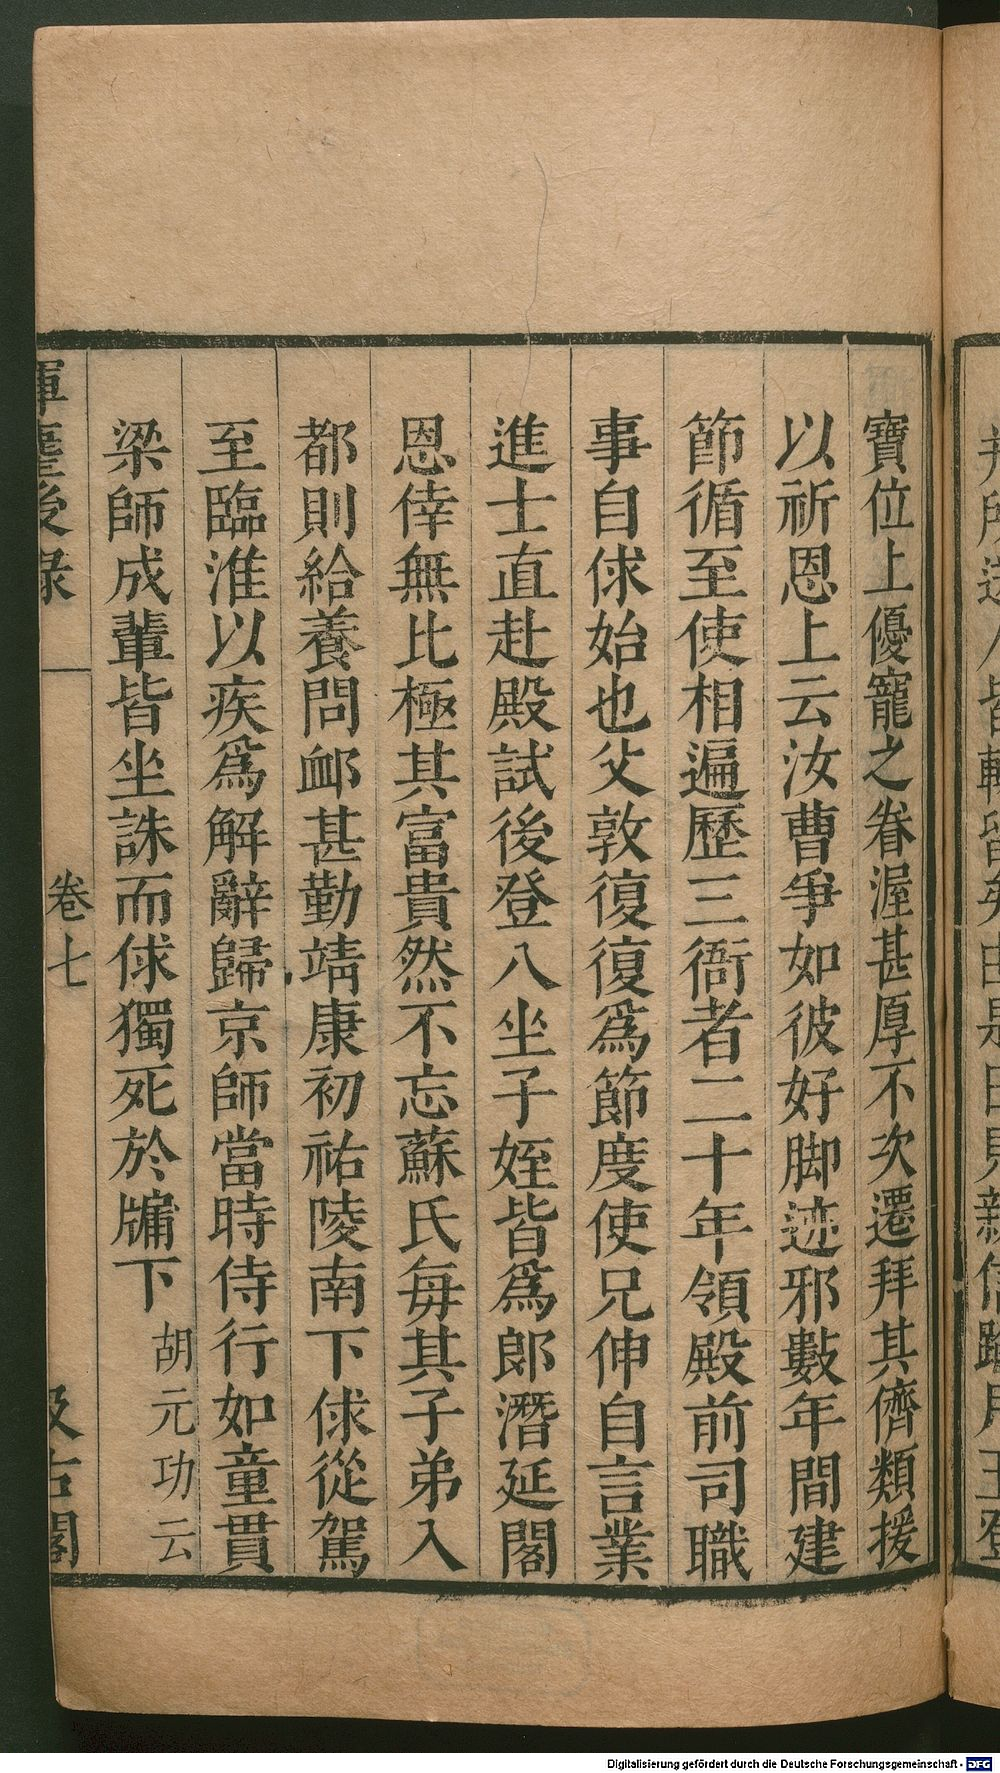 寶位上優寵之眷渥甚厚不次遷拜其儕類援
以祈恩上云汝曹爭如彼好脚迹邪數年間建
節循至使相遍歷三衙者二十年領殿前司職
事自俅始也父敦復復爲節度使兄伸自言業
進士直赴殿試後登八坐子姪皆爲郎潛延閣
恩倖無比極其富貴然不忘蘇氏每其子弟入
都則給養問衈甚勤靖康初祐陵南下俅從駕
至臨淮以疾爲解辭歸京師當時侍行如童貫
梁師成輩皆坐誅而俅獨死於牖下胡元功云
揮麈後錄 卷七 汲古閣
Digitalisierung gefördert durch die Deutsche Forschungsgemeinschaft - DFG